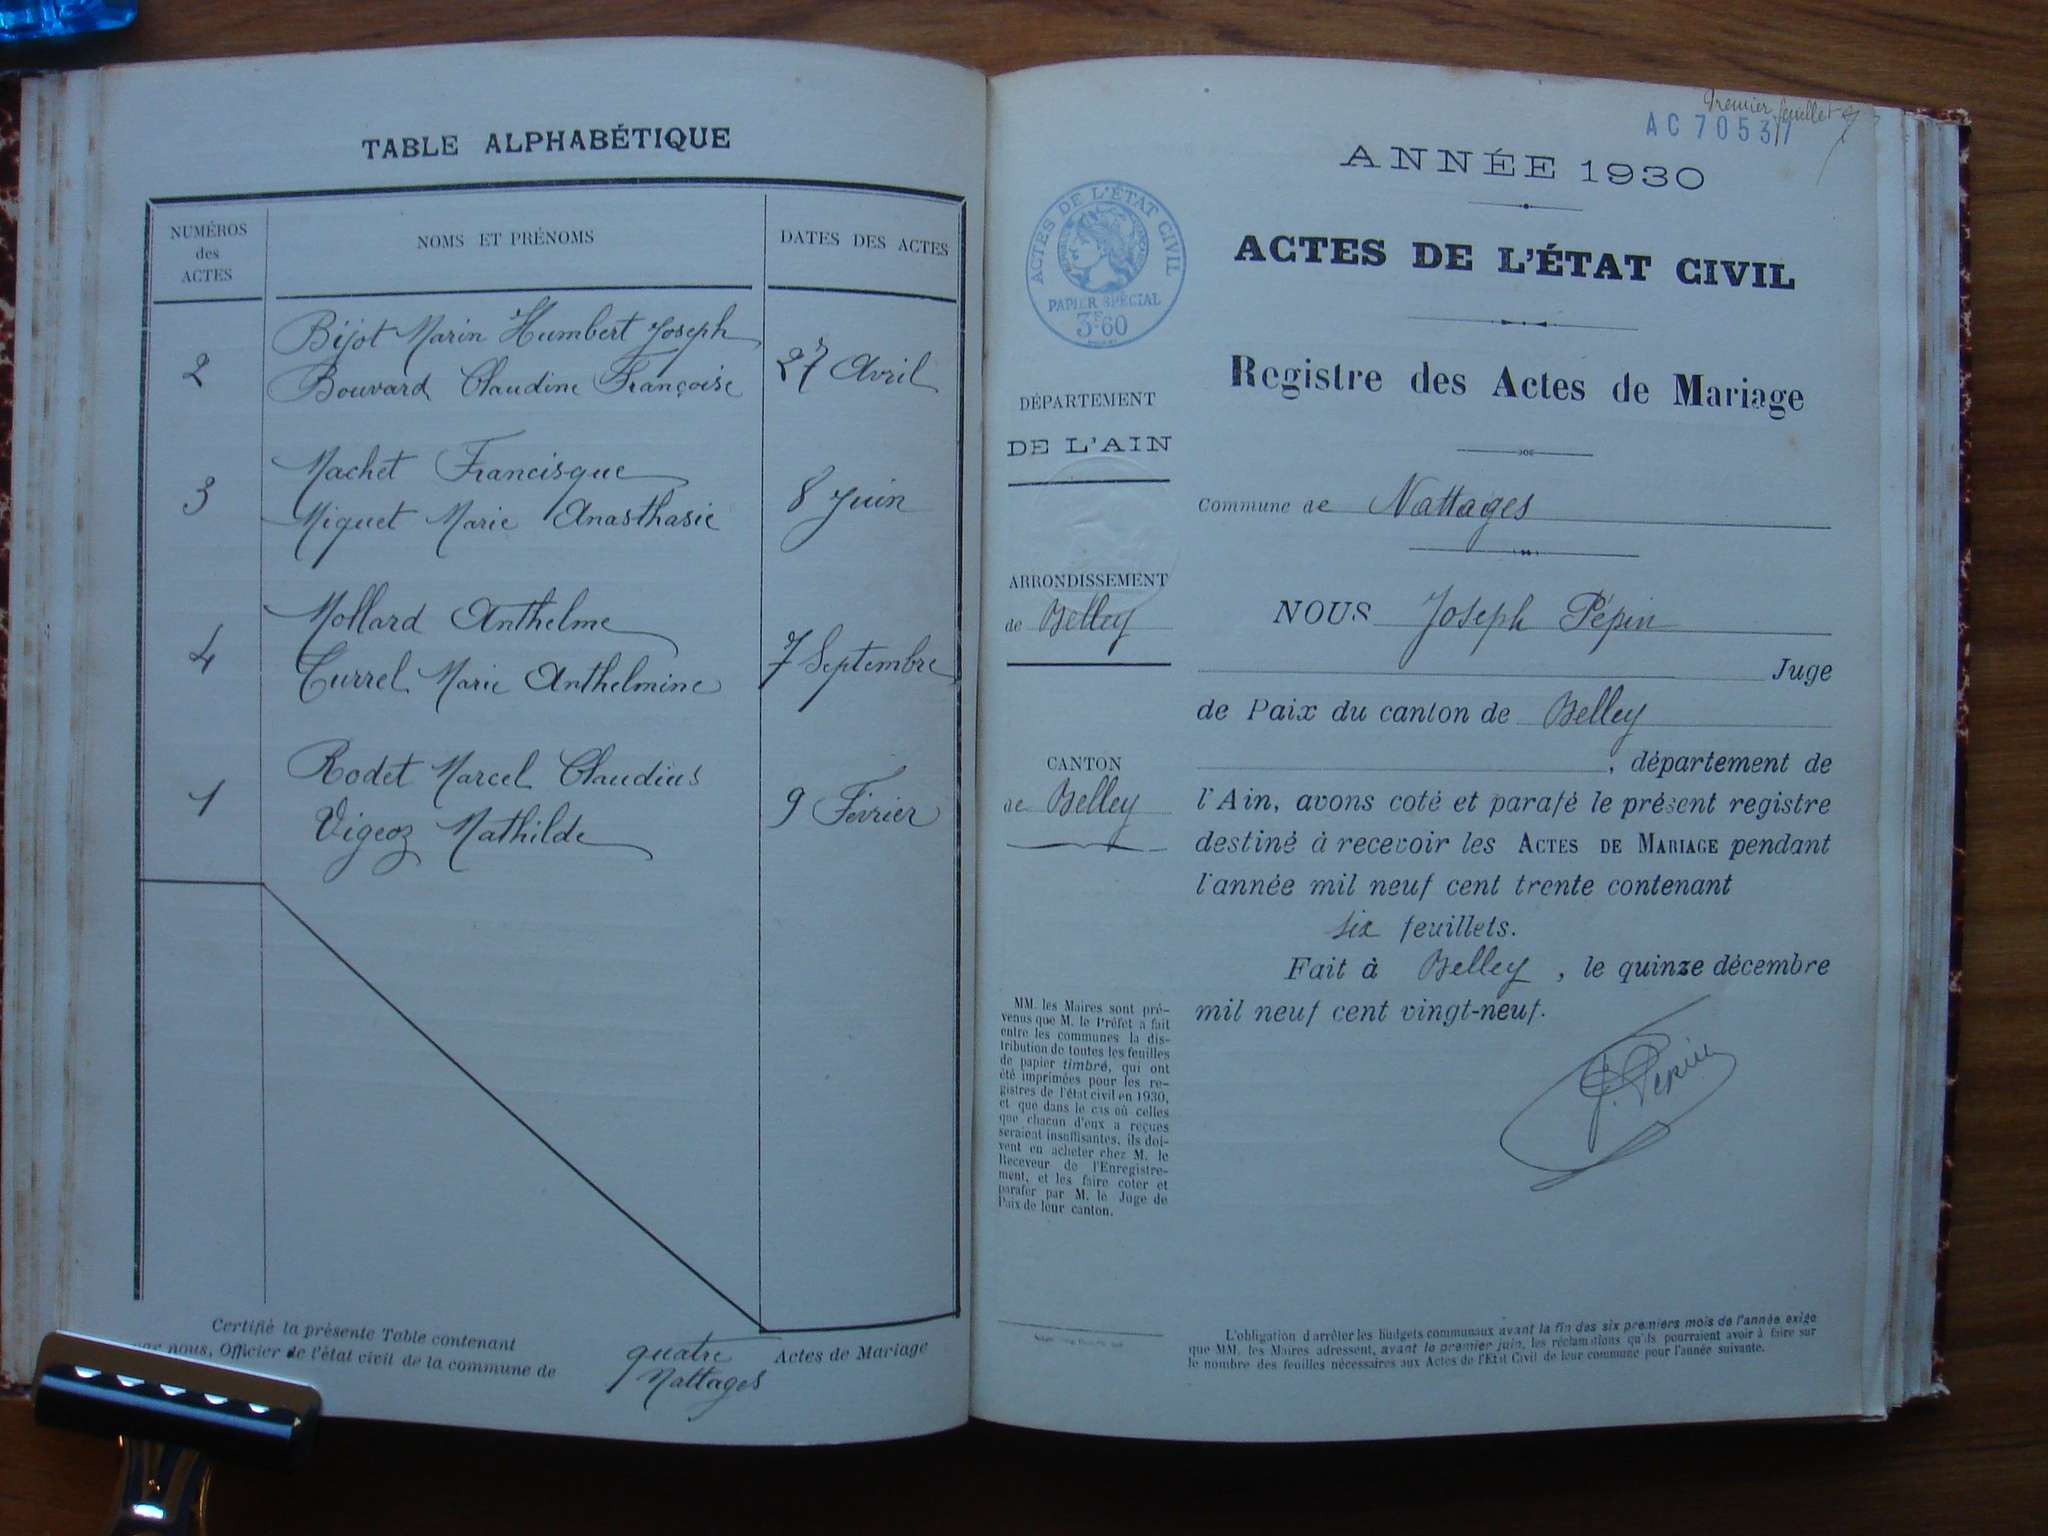 TABLE ALPHABÉTIQUE
NUMÉROS
des
ACTES
NOMS ET PRÉNOMS
DATES DES ACTES
2
Bijot Marin Humbert Joseph
Bouvard Claudine Françoise
27 Avril
3
Machet Francisque
Miguet Marie Anasthasie
8 Juin
4
Mollard Anthelme
Currel Marie Anthelmine
7 Septembre
1
Rodet Marcel Claudius
Vigeoz Mathilde
9 Février
Certifié la présente Table contenant quatre Actes de Mariage
par nous, Officier de l'état civil de la commune de Nattages
Premier feuillet
AC 7053
ANNÉE 1930
ACTES DE L'ÉTAT CIVIL
PAPIER SPÉCIAL
3F60
ACTES DE L'ÉTAT CIVIL
Registre des Actes de Mariage
DÉPARTEMENT
DE L'AIN
Commune de Nattages
ARRONDISSEMENT
de Belley
NOUS Joseph Pépin
Juge
de Paix du canton de Belley
CANTON
de Belley
, département de
l'Ain, avons coté et parafé le présent registre
destiné à recevoir les ACTES DE MARIAGE pendant
l'année mil neuf cent trente contenant
six feuillets.
Fait à Belley, le quinze décembre
mil neuf cent vingt-neuf.
J. Pépin
MM. les Maires sont pré-
venus que M. le Préfet a fait
entre les communes la dis-
tribution de toutes les feuilles
de papier timbré, qui ont
été imprimées pour les re-
gistres de l'état civil en 1930,
et que dans le cas où celles
que chacun d'eux a reçues
seraient insuffisantes, ils doi-
vent en acheter chez M. le
Receveur de l'Enregistre-
ment, et les faire coter et
parafer par M. le Juge de
Paix de leur canton.
L'obligation d'arrêter les budgets communaux avant la fin des six premiers mois de l'année exige
que MM. les Maires adressent, avant le premier juin, les réclamations qu'ils pourraient avoir à faire sur
le nombre des feuilles nécessaires aux Actes de l'Etat Civil de leur commune pour l'année suivante.